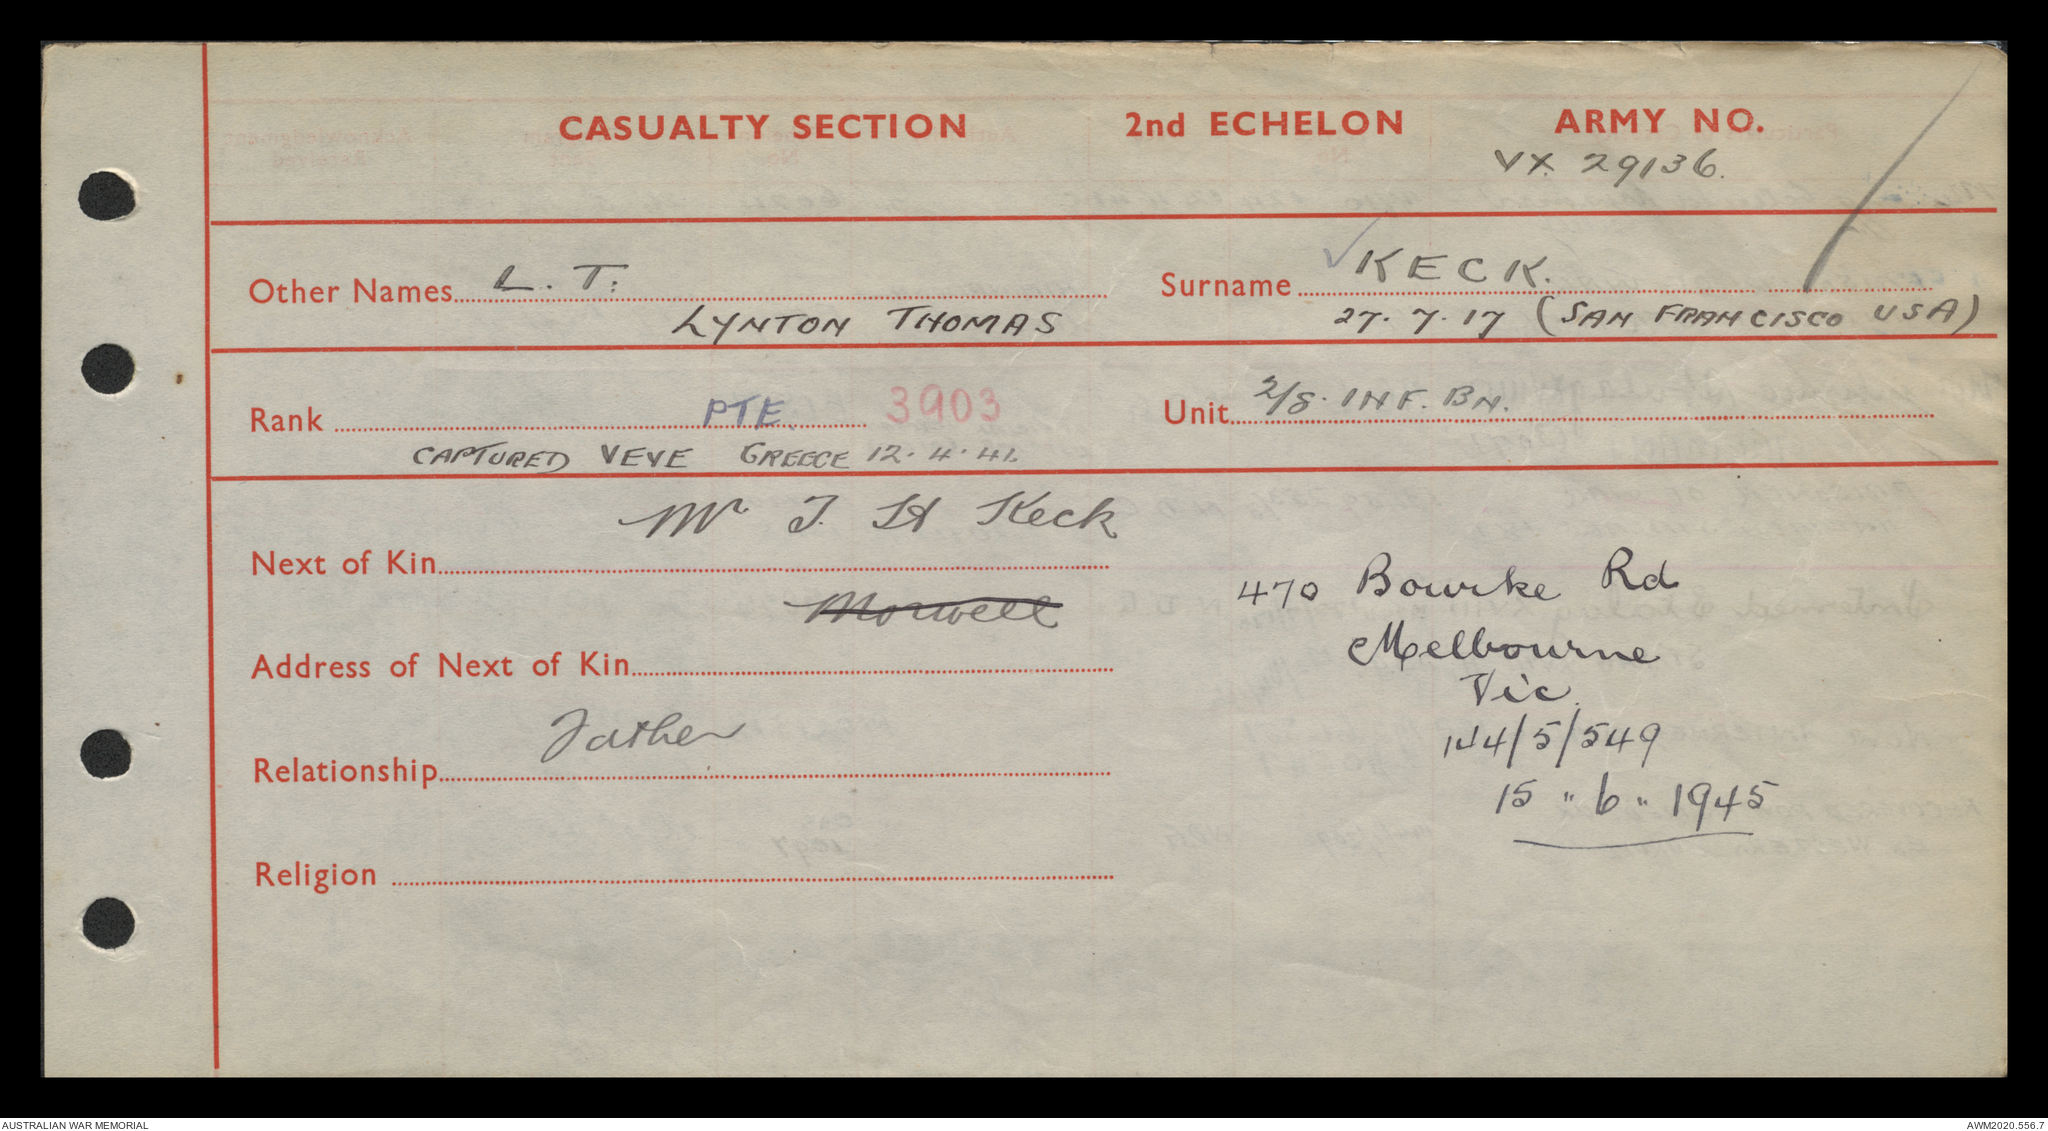 CASUALTY SECTION 2nd ECHELON ARMY NO.
VX. 29136.
Other Names L. T. Surname KECK.
LYNTON THOMAS 27. 7. 17 (SAN FRANCISCO USA)
Rank PTE. 3903 Unit 2/8. INF. BN.
CAPTURED VEVE GREECE 12. 4. 41.
Mr T. H Keck
Next of Kin
470 Bourke Rd
Morwell
Melbourne
Address of Next of Kin
Vic.
Father
144/5/549
Relationship
15 " 6 " 1945
Religion
AUSTRALIAN WAR MEMORIAL AWM2020.556.7